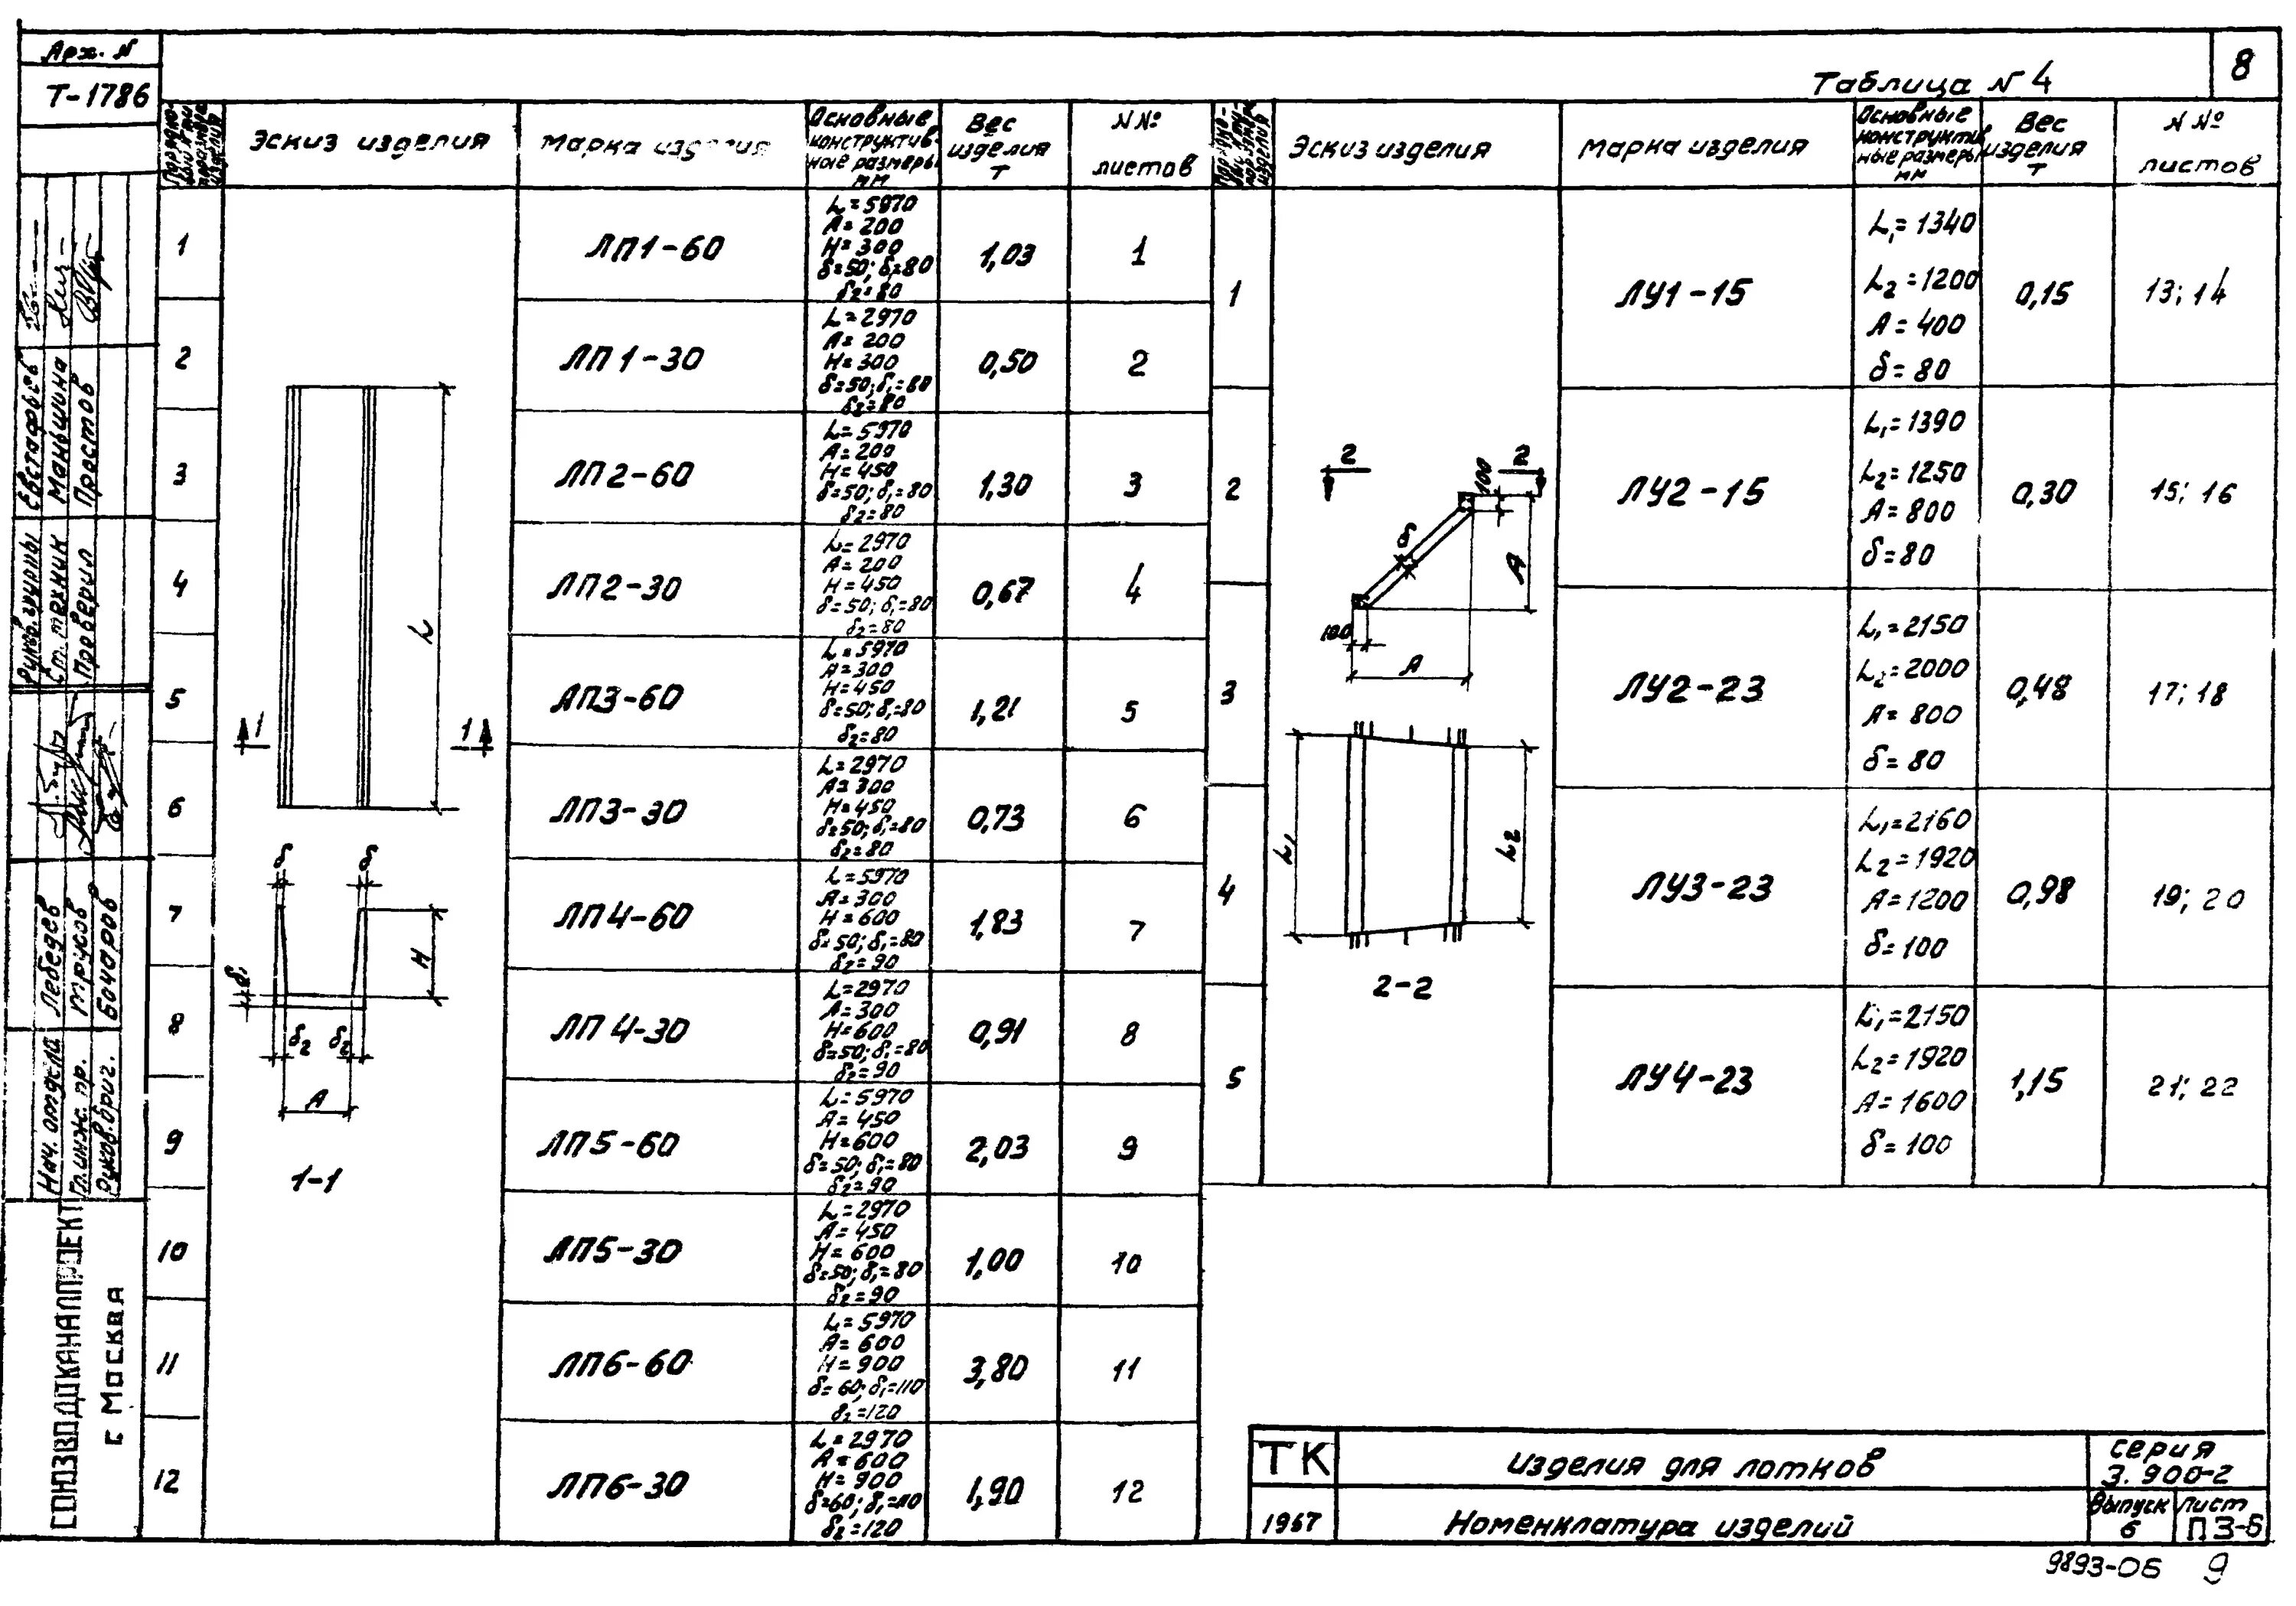 Арх. N
Т-1786
8
Таблица N 4
Эскиз изделия
Марка изделия
Основные конструктив-
ные размеры
мм
Вес
изделия
т
NNº
листов
1
ЛП1-60
L=5970
A=200
H=300
δ=50; δ₁=80
δ₂=80
1,03
1
2
ЛП1-30
L=2970
A=200
H=300
δ=50; δ₁=80
δ₂=80
0,50
2
3
ЛП2-60
L=5970
A=200
H=450
δ=50; δ₁=80
δ₂=80
1,30
3
4
ЛП2-30
L=2970
A=200
H=450
δ=50; δ₁=80
δ₂=80
0,67
4
5
ЛП3-60
L=5970
A=300
H=450
δ=50; δ₁=80
δ₂=80
1,21
5
6
ЛП3-30
L=2970
A=300
H=450
δ=50; δ₁=80
δ₂=80
0,73
6
7
ЛП4-60
L=5970
A=300
H=600
δ=50; δ₁=80
δ₂=90
1,83
7
8
ЛП4-30
L=2970
A=300
H=600
δ=50; δ₁=80
δ₂=90
0,91
8
9
ЛП5-60
L=5970
A=450
H=600
δ=50; δ₁=80
δ₂=90
2,03
9
10
ЛП5-30
L=2970
A=450
H=600
δ=50; δ₁=80
δ₂=90
1,00
10
11
ЛП6-60
L=5970
A=600
H=900
δ=60; δ₁=110
δ₂=120
3,80
11
12
ЛП6-30
L=2970
A=600
H=900
δ=60; δ₁=110
δ₂=120
1,90
12
L
1
1
δ
δ
H
δ₁
δ₂
δ₂
A
1-1
Эскиз изделия
Марка изделия
Основные
конструктив
ные размеры
мм
Вес
изделия
т
NNº
листов
1
ЛУ1-15
L₁=1340
L₂=1200
A=400
δ=80
0,15
13; 14
2
ЛУ2-15
L₁=1390
L₂=1250
A=800
δ=80
0,30
15; 16
3
ЛУ2-23
L₁=2150
L₂=2000
A=800
δ=80
0,48
17; 18
4
ЛУ3-23
L₁=2160
L₂=1920
A=1200
δ=100
0,98
19; 20
5
ЛУ4-23
L₁=2150
L₂=1920
A=1600
δ=100
1,15
21; 22
2
2
100
δ
A
100
A
L₁
L₂
2-2
Руков. группы Евстафьев
Ст. техник Маньшина
Проверил Простов
Нач. отдела Лебедев
Гл. инж. пр. Трусов
Руков. бриг. Бочаров
СОЮЗВОДОКАНАЛПРОЕКТ
г Москва
ТК
1967
Изделия для лотков
Номенклатура изделий
серия
3.900-2
Выпуск
6
Лист
ПЗ-6
9893-06
9